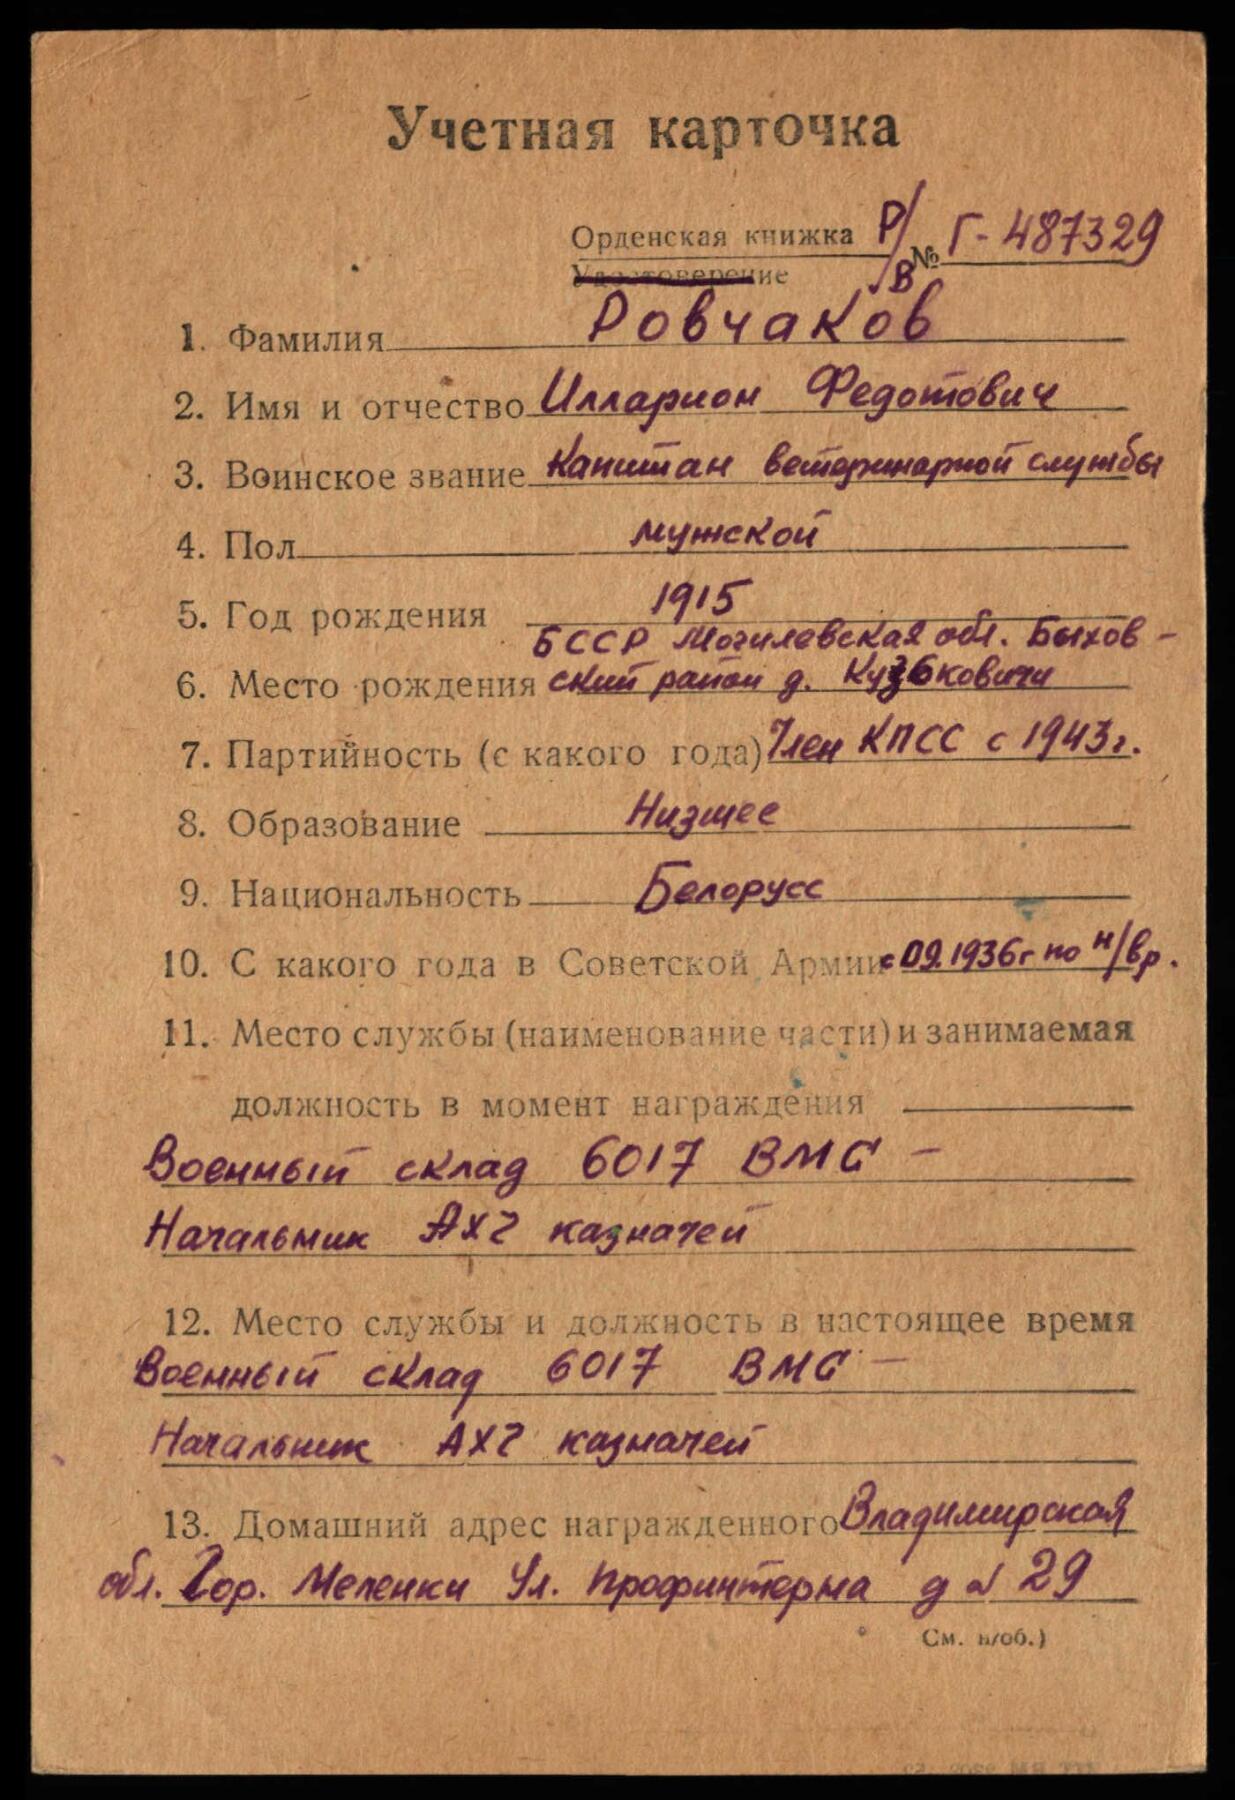 Учетная карточка
Орденская книжка Р/В № Г-487329
Удостоверение
1. Фамилия Ровчаков
2. Имя и отчество Илларион Федотович
3. Воинское звание Капитан ветеринарной службы
4. Пол мужской
5. Год рождения 1915
БССР Могилевская обл. Быхов-
6. Место рождения ский район д. Кузьковичи
7. Партийность (с какого года) Член КПСС с 1943г.
8. Образование Низшее
9. Национальность Белорусс
10. С какого года в Советской Армии с 09.1936г по н/вр.
11. Место службы (наименование части) и занимаемая
должность в момент награждения
Военный склад 6017 ВМС -
Начальник АХЧ казначей
12. Место службы и должность в настоящее время
Военный склад 6017 ВМС -
Начальник АХЧ казначей
13. Домашний адрес награжденного Владимирская
обл. Гор. Меленки Ул. Профинтерна д № 29
См. н/об.)